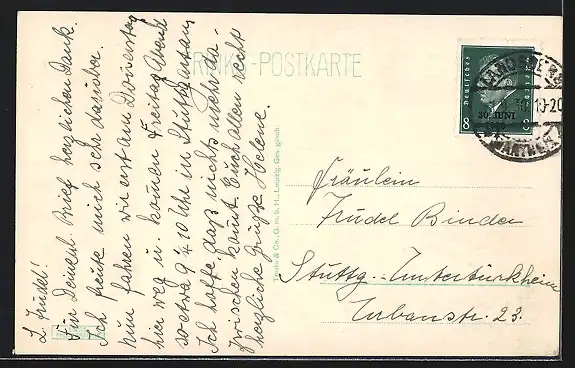 L. Trudel!
Für Deinen l. Brief herzlichen Dank.
Ich freute mich sehr darüber.
Nun fahren wir erst am Donnerstag
hier weg u. kommen Freitag Abend
so etwa 9¼10 Uhr in Stuttgart an.
Ich hoffe, daß nichts mehr da-
zwischen kommt. Euch allen recht
herzliche Grüße Helene.
TRINKS-POSTKARTE
Trinks & Co., G. m. b. H., Leipzig. Ges. gesch.
Deutsches
30. JUNI
1930
8 8
30.10-20
Fräulein
Trudel Binder
Stuttg.-Untertürkheim
Urbanstr. 23.